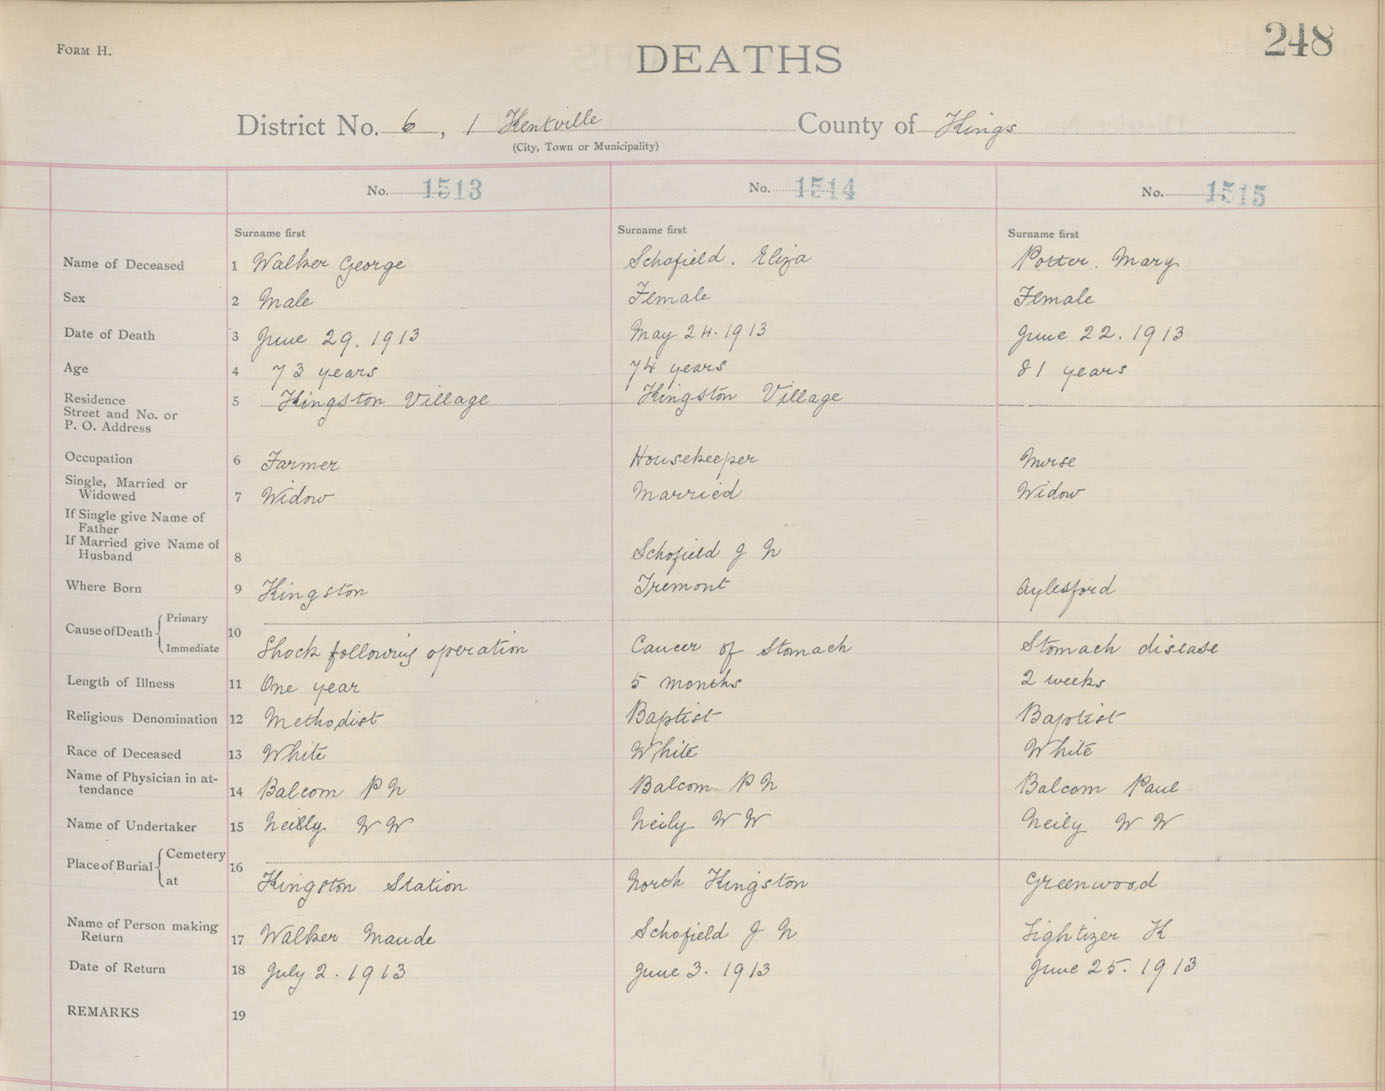 FORM H.
248
DEATHS
District No. 6, 1 Kentville County of Kings
(City, Town or Municipality)
No. 1513 No. 1514 No. 1515
Surname first Surname first Surname first
Name of Deceased 1 Walker George Schofield. Eliza Potter. Mary
Sex 2 Male Female Female
Date of Death 3 June 29. 1913 May 24. 1913 June 22. 1913
Age 4 73 years 74 years 81 years
Residence 5 Kingston Village Kingston Village
Street and No. or
P. O. Address
Occupation 6 Farmer Housekeeper Nurse
Single, Married or
Widowed 7 Widow Married Widow
If Single give Name of
Father
If Married give Name of
Husband 8 Schofield J N
Where Born 9 Kingston Tremont Aylesford
Cause of Death Primary
10
Immediate Shock following operation Cancer of Stomach Stomach disease
Length of Illness 11 One year 5 months 2 weeks
Religious Denomination 12 Methodist Baptist Baptist
Race of Deceased 13 White White White
Name of Physician in at-
tendance 14 Balcom P N Balcom P N Balcom Paul
Name of Undertaker 15 Neily W W Neily W W Neily W W
Place of Burial Cemetery
16
at Kingston Station North Kingston Greenwood
Name of Person making
Return 17 Walker Maude Schofield J N Lightizer K
Date of Return 18 July 2. 1913 June 3. 1913 June 25. 1913
REMARKS 19